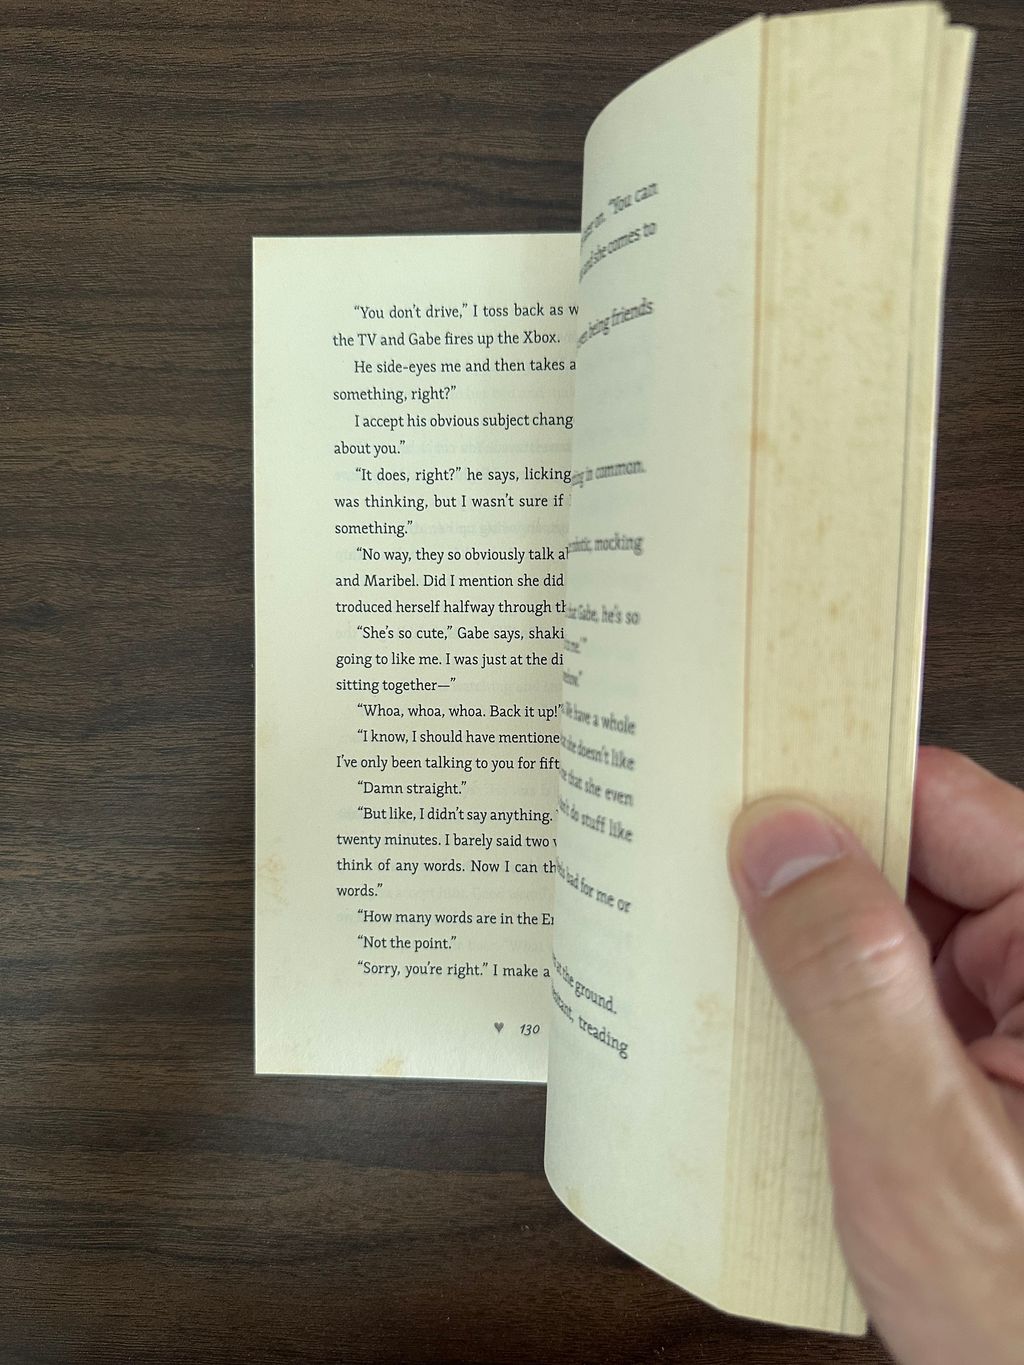 “You don’t drive,” I toss back as
the TV and Gabe fires up the Xbox.
He side-eyes me and then takes a
something, right?”
I accept his obvious subject
about you.”
“It does, right?” he says, licking
was thinking, but I wasn’t sure if
something.”
“No way, they so obviously talk
and Maribel. Did I mention she did
troduced herself halfway through
“She’s so cute,” Gabe says,
going to like me. I was just at the
sitting together—”
“Whoa, whoa, whoa. Back it up!”
“I know, I should have
I’ve only been talking to you for
“Damn straight.”
“But like, I didn’t say anything.
twenty minutes. I barely said two
think of any words. Now I can
words.”
“How many words are in the
“Not the point.”
“Sorry, you’re right.” I make a
♥ 130
on. “You can
and she comes to
being friends
in common.
mocking
Gabe, he’s so
me.’”
have a whole
she doesn’t like
that she even
do stuff like
bad for me or
the ground.
treading